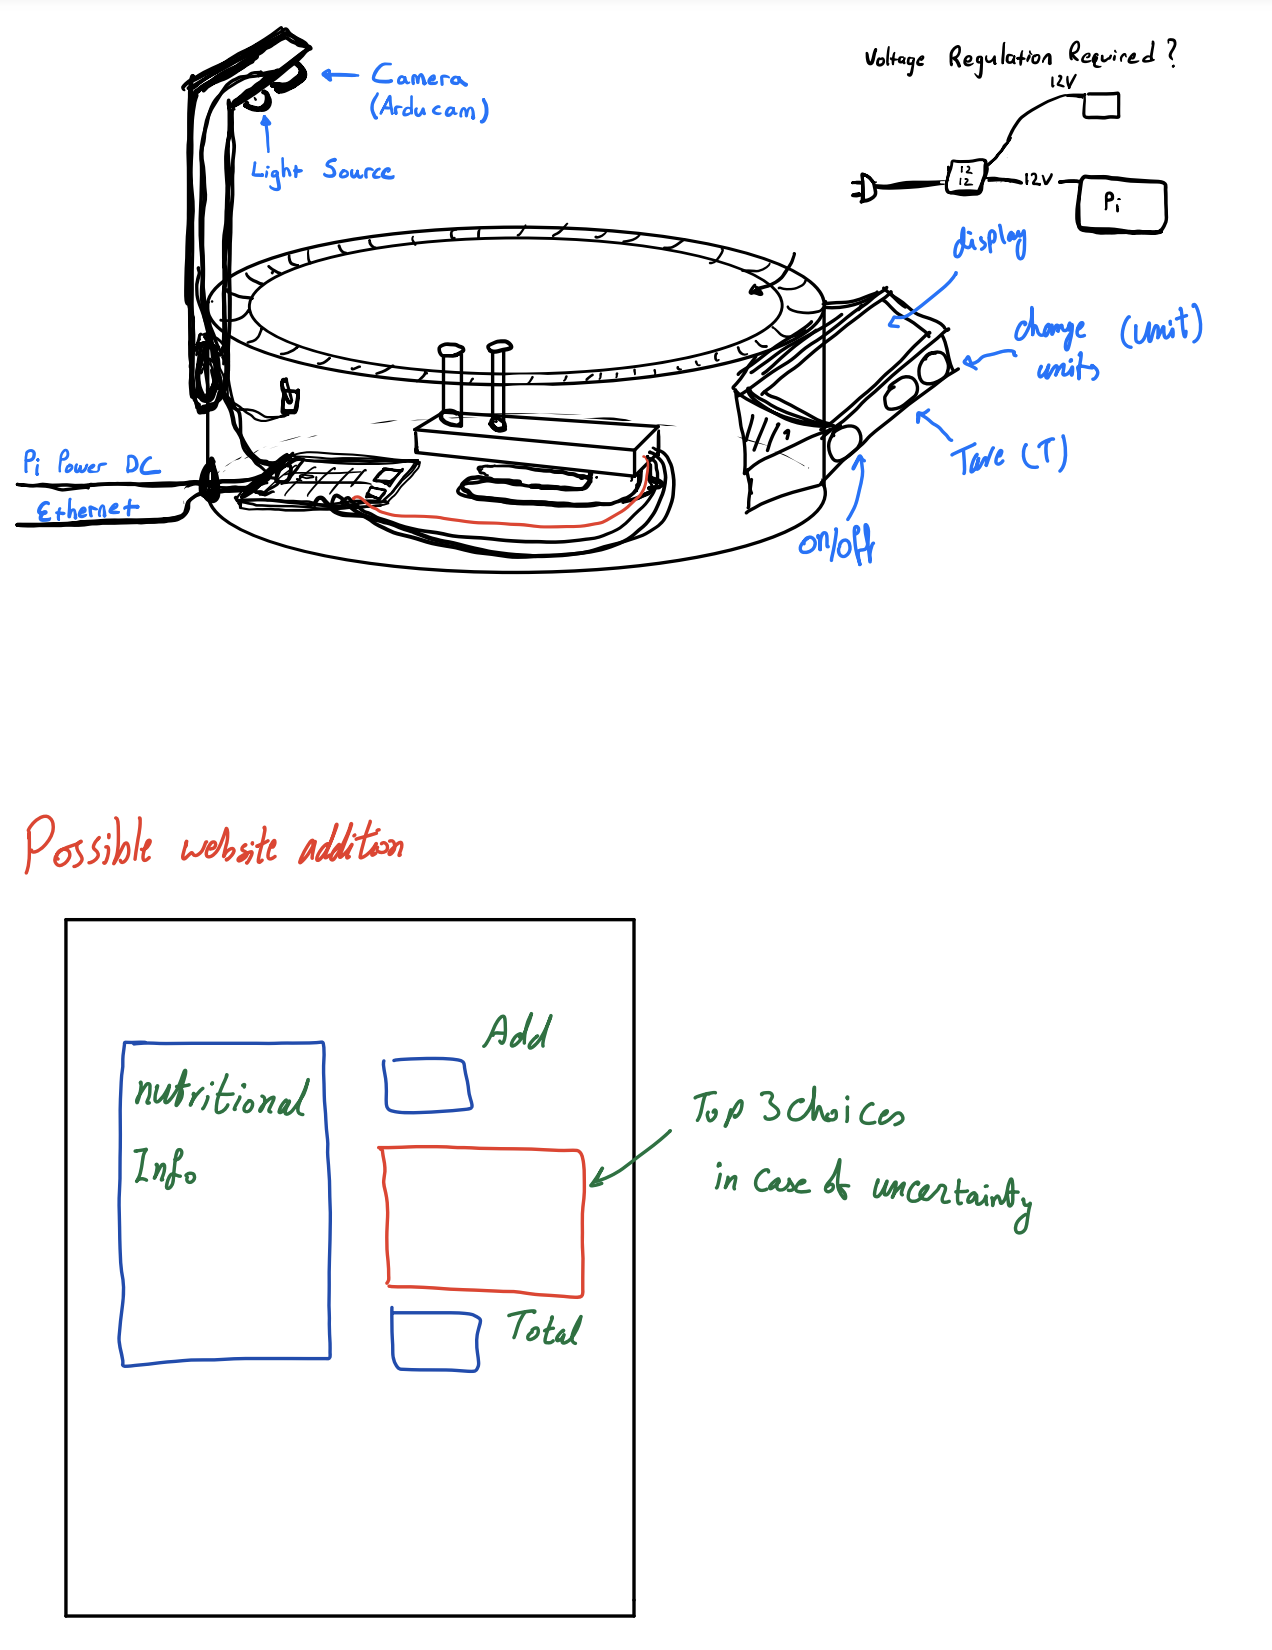 Camera
(Arducam)
Light Source
Voltage Regulation Required?
12V
12
12
12V
Pi
display
change (unit)
units
Tare (T)
on/off
Pi Power DC
Ethernet
Possible website addition
Add
nutritional
Info
Top 3 choices
in case of uncertainty
Total